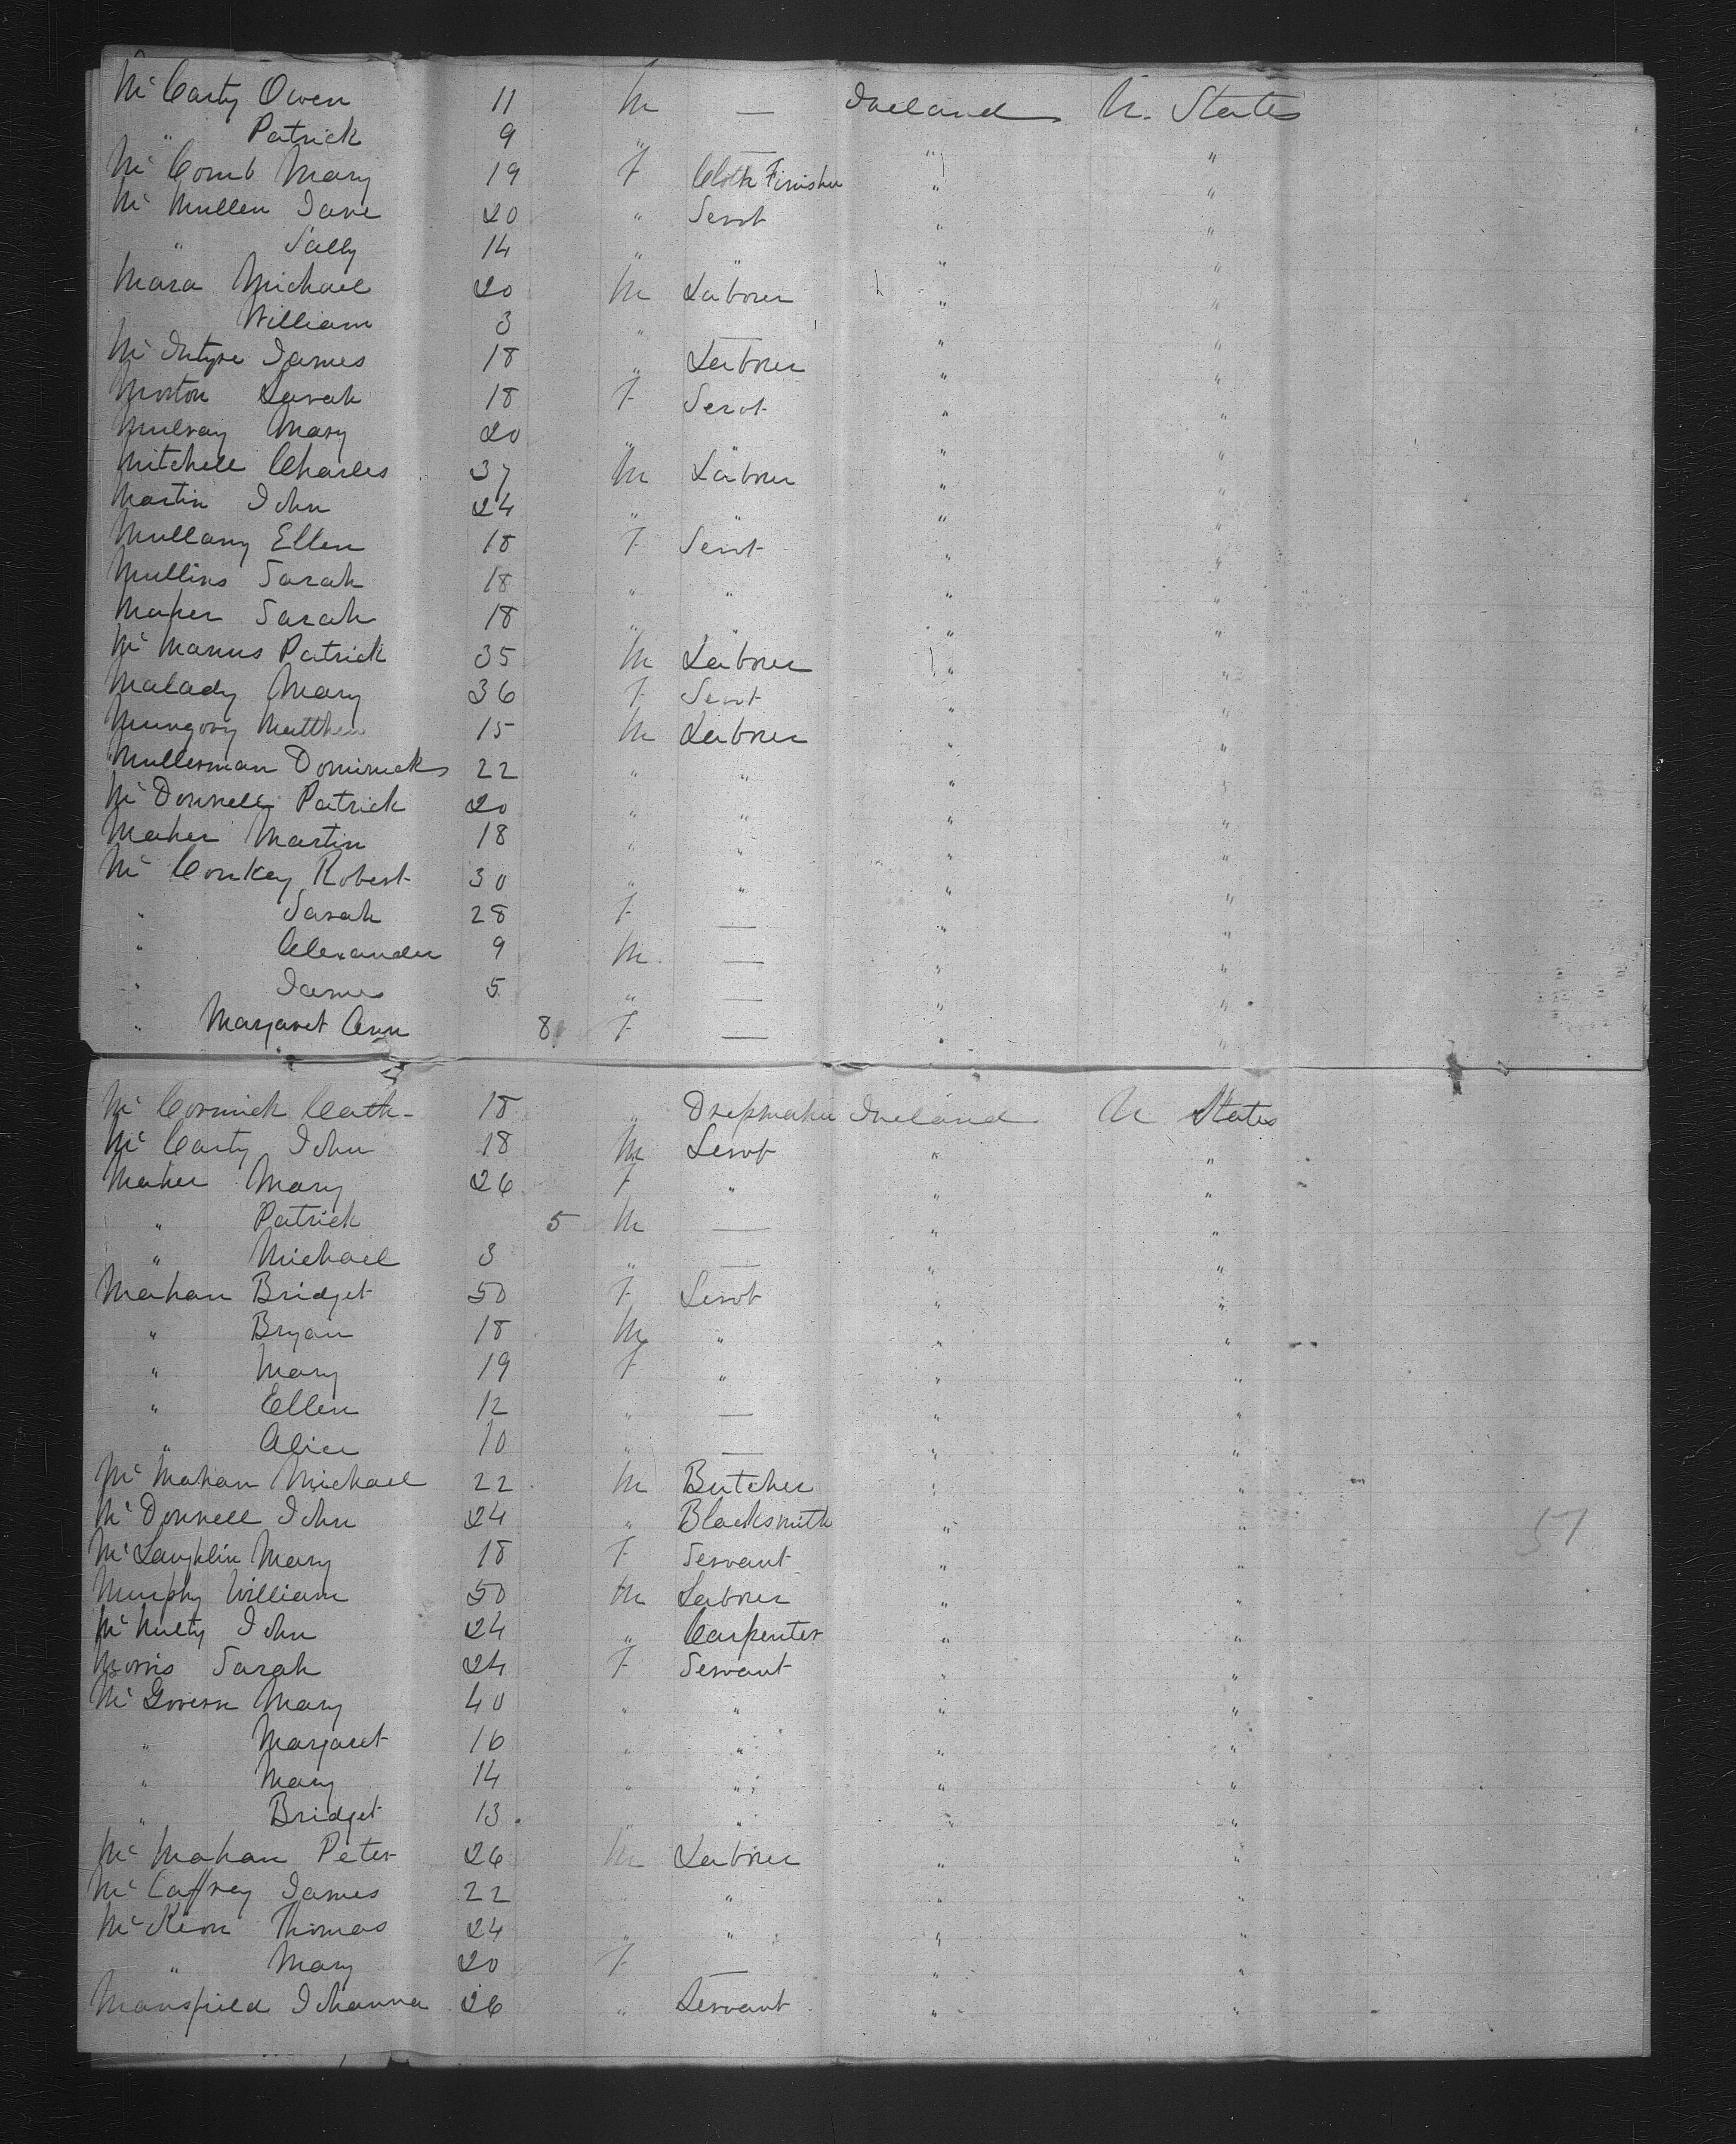 Mc Carty Owen 11 M — Ireland U. States
" Patrick 9 " — " "
Mc Comb Mary 19 F Cloth Finisher " "
Mc Mullen Jane 20 " Servt " "
" Sally 14 " " " "
Mara Michael 20 M Laborer " "
William 3 " — " "
Mc Intyre James 18 " Laborer " "
Morton Sarah 18 F Servt " "
Mulvay Mary 20 " " " "
Mitchell Charles 37 M Laborer " "
Martin John 24 " " " "
Mullany Ellen 18 F Servt " "
Mullins Sarah 18 " " " "
Maher Sarah 18 " " " "
Mc Manus Patrick 35 M Laborer " "
Malady Mary 36 F Servt " "
Mungovy Matthew 15 M Laborer " "
Mullerman Dominick 22 " " " "
Mc Donnell Patrick 20 " " " "
Maher Martin 18 " " " "
Mc Conkey Robert 30 " " " "
" Sarah 28 F — " "
" Alexander 9 M — " "
" James 5 " — " "
" Margaret Ann 8 F — " "
Mc Cormick Cath- 18 " Dressmaker Ireland U States
Mc Carty John 18 M Servt " "
Maher Mary 26 F " " "
" Patrick 5 M — " "
" Michael 3 " — " "
Mahan Bridget 50 F Servt " "
" Bryan 18 M " " "
" Mary 19 F " " "
" Ellen 12 " — " "
" Alice 10 " — " "
Mc Mahan Michael 22 M Butcher " "
Mc Donnell John 24 " Blacksmith " "
Mc Laughlin Mary 18 F Servant " "
Murphy William 50 M Laborer " "
Mc Nulty John 24 " Carpenter " "
Morris Sarah 24 F Servant " "
Mc Govern Mary 40 " " " "
" Margaret 16 " " " "
" Mary 14 " " " "
" Bridget 13 " " " "
Mc Mahan Peter 26 M Laborer " "
Mc Caffrey James 22 " " " "
Mc Keon Thomas 24 " " " "
" Mary 20 F — " "
Mansfield Johanna 26 " Servant " "
57